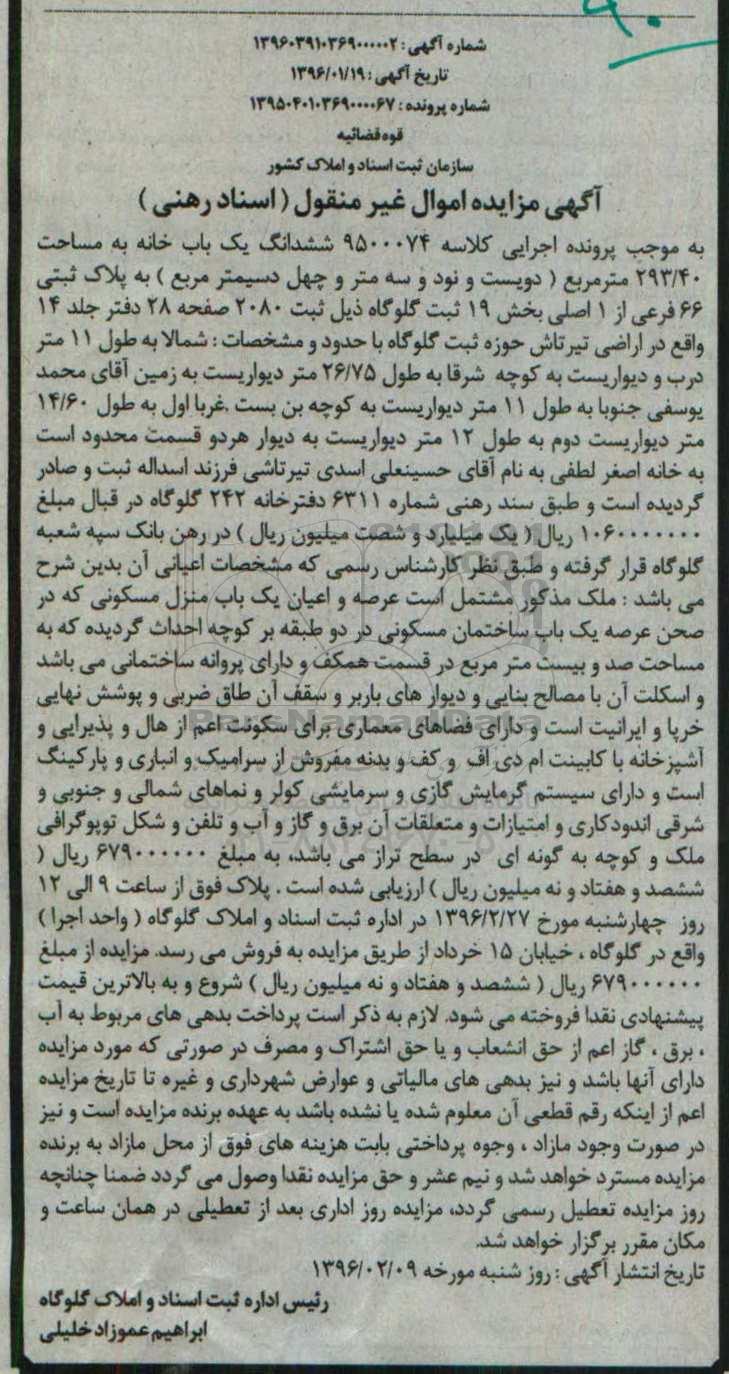 شماره آگهی: ۱۳۹۶۰۳۹۱۰۳۶۹۰۰۰۰۰۲
تاریخ آگهی: ۱۳۹۶/۰۱/۱۹
شماره پرونده: ۱۳۹۵۰۴۰۱۰۳۶۹۰۰۰۰۶۷
قوه قضائیه
سازمان ثبت اسناد و املاک کشور
آگهی مزایده اموال غیر منقول ( اسناد رهنی )
به موجب پرونده اجرایی کلاسه ۹۵۰۰۰۷۴ ششدانگ یک باب خانه به مساحت
۲۹۳/۴۰ مترمربع ( دویست و نود و سه متر و چهل دسیمتر مربع ) به پلاک ثبتی
۶۶ فرعی از ۱ اصلی بخش ۱۹ ثبت گلوگاه ذیل ثبت ۲۰۸۰ صفحه ۲۸ دفتر جلد ۱۴
واقع در اراضی تیرتاش حوزه ثبت گلوگاه با حدود و مشخصات : شمالا به طول ۱۱ متر
درب و دیواریست به کوچه شرقا به طول ۲۶/۷۵ متر دیواریست به زمین آقای محمد
یوسفی جنوبا به طول ۱۱ متر دیواریست به کوچه بن بست ,غربا اول به طول ۱۴/۶۰
متر دیواریست دوم به طول ۱۲ متر دیواریست به دیوار هردو قسمت محدود است
به خانه اصغر لطفی به نام آقای حسینعلی اسدی تیرتاشی فرزند اسداله ثبت و صادر
گردیده است و طبق سند رهنی شماره ۶۳۱۱ دفترخانه ۲۴۲ گلوگاه در قبال مبلغ
۱۰۶۰۰۰۰۰۰۰ ریال ( یک میلیارد و شصت میلیون ریال ) در رهن بانک سپه شعبه
گلوگاه قرار گرفته و طبق نظر کارشناس رسمی که مشخصات اعیانی آن بدین شرح
می باشد : ملک مذکور مشتمل است عرصه و اعیان یک باب منزل مسکونی که در
صحن عرصه یک باب ساختمان مسکونی در دو طبقه بر کوچه احداث گردیده که به
مساحت صد و بیست متر مربع در قسمت همکف و دارای پروانه ساختمانی می باشد
و اسکلت آن با مصالح بنایی و دیوار های باربر و سقف آن طاق ضربی و پوشش نهایی
خرپا و ایرانیت است و دارای فضاهای معماری برای سکونت اعم از هال و پذیرایی و
آشپزخانه با کابینت ام دی اف و کف و بدنه مفروش از سرامیک و انباری و پارکینگ
است و دارای سیستم گرمایش گازی و سرمایشی کولر و نماهای شمالی و جنوبی و
شرقی اندودکاری و امتیازات و متعلقات آن برق و گاز و آب و تلفن و شکل توپوگرافی
ملک و کوچه به گونه ای در سطح تراز می باشد، به مبلغ ۶۷۹۰۰۰۰۰۰ ریال (
ششصد و هفتاد و نه میلیون ریال ) ارزیابی شده است . پلاک فوق از ساعت ۹ الی ۱۲
روز چهارشنبه مورخ ۱۳۹۶/۲/۲۷ در اداره ثبت اسناد و املاک گلوگاه ( واحد اجرا )
واقع در گلوگاه ، خیابان ۱۵ خرداد از طریق مزایده به فروش می رسد. مزایده از مبلغ
۶۷۹۰۰۰۰۰۰ ریال ( ششصد و هفتاد و نه میلیون ریال ) شروع و به بالاترین قیمت
پیشنهادی نقدا فروخته می شود. لازم به ذکر است پرداخت بدهی های مربوط به آب
، برق ، گاز اعم از حق انشعاب و یا حق اشتراک و مصرف در صورتی که مورد مزایده
دارای آنها باشد و نیز بدهی های مالیاتی و عوارض شهرداری و غیره تا تاریخ مزایده
اعم از اینکه رقم قطعی آن معلوم شده یا نشده باشد به عهده برنده مزایده است و نیز
در صورت وجود مازاد ، وجوه پرداختی بابت هزینه های فوق از محل مازاد به برنده
مزایده مسترد خواهد شد و نیم عشر و حق مزایده نقدا وصول می گردد ضمنا چنانچه
روز مزایده تعطیل رسمی گردد، مزایده روز اداری بعد از تعطیلی در همان ساعت و
مکان مقرر برگزار خواهد شد.
تاریخ انتشار آگهی : روز شنبه مورخه ۱۳۹۶/۰۲/۰۹
رئیس اداره ثبت اسناد و املاک گلوگاه
ابراهیم عموزاد خلیلی